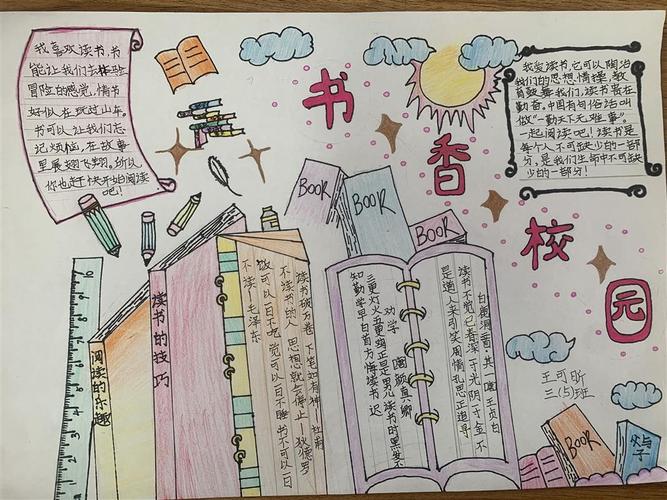 我喜欢读书,书
能让我们去体验
冒险的感觉,情节
好似在玩过山车。
书可以让我们忘
记烦恼,在故事
里展翅飞翔。所以
你也赶快开始阅读
吧!
书香校园
我爱读书,它可以陶冶
我们的思想情操,教
育鼓舞我们,读书贵在
勤奋。中国有句俗话叫
做“一勤天下无难事”。
一起阅读吧!读书是
每个人不可缺少的一部
分,是我们生命中不可缺
少的一部分!
BOOK
BOOK
BOOK
阅读的乐趣
读书的技巧
读书破万卷 下笔如有神—杜甫
不读书的人 思想就会停止—狄德罗
饭可以一日不吃 觉可以一日不睡 书不可以一日
不读—毛泽东
劝学 颜真卿
三更灯火五更鸡正是男儿读书时黑发不
知勤学早白首方悔读书迟
白鹿洞 其一 唐 王贞白
读书不觉已春深一寸光阴一寸金不
是道人来引笑周情孔思正追寻
王可昕
三(5)班
BOOK
父与子